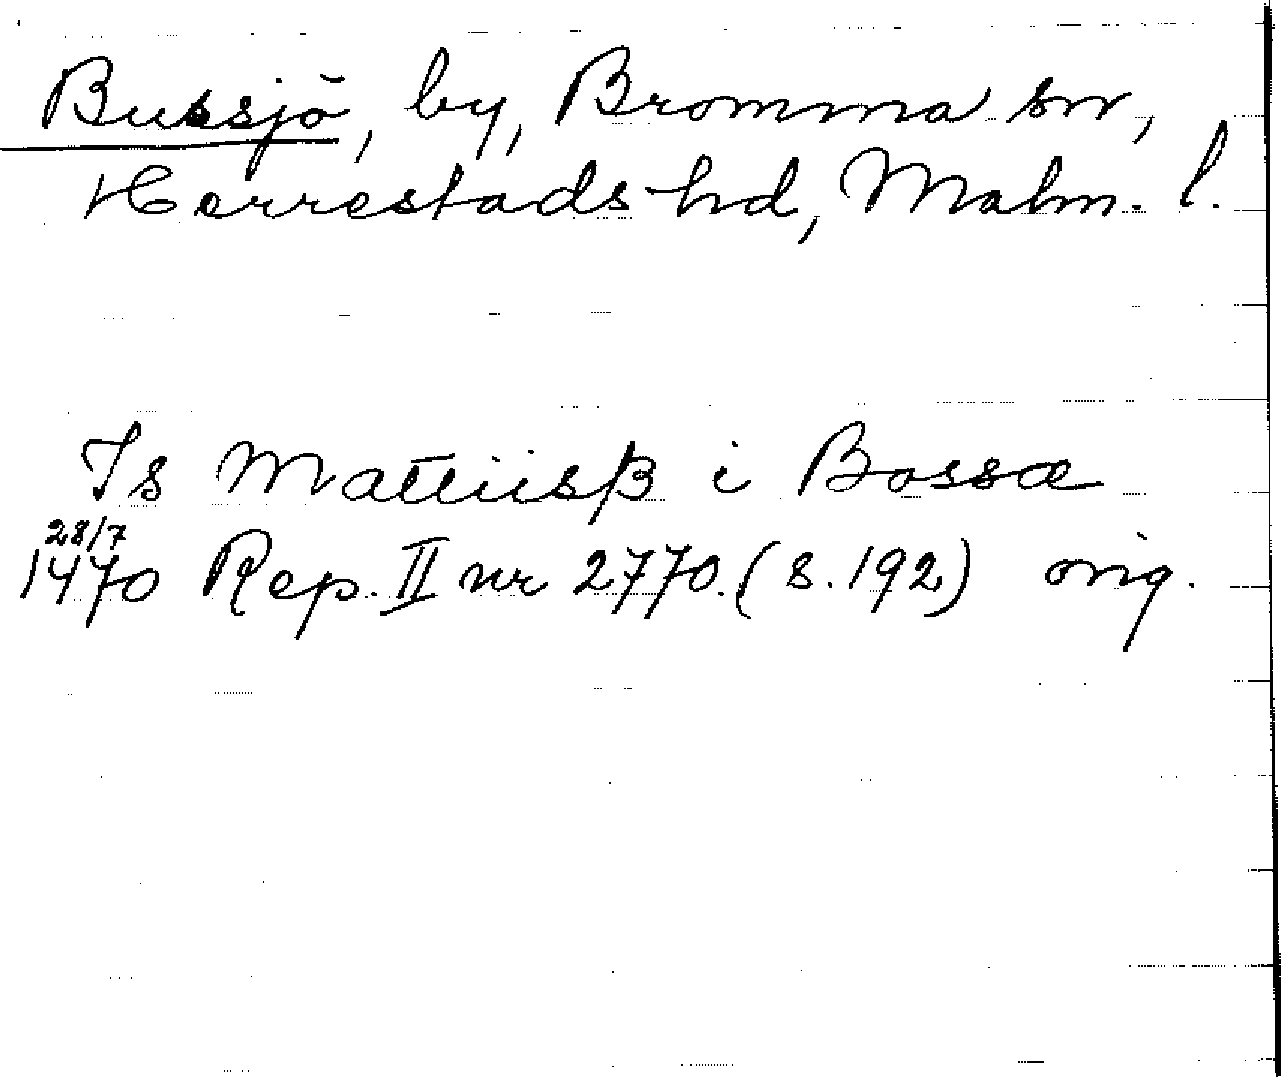 Bussjö, by, Bromma sn,
Herrestads hd, Malm. l.
Is Mattiisß i Bossæ
28/7
1470 Rep. II nr 2770. (s. 192) orig.